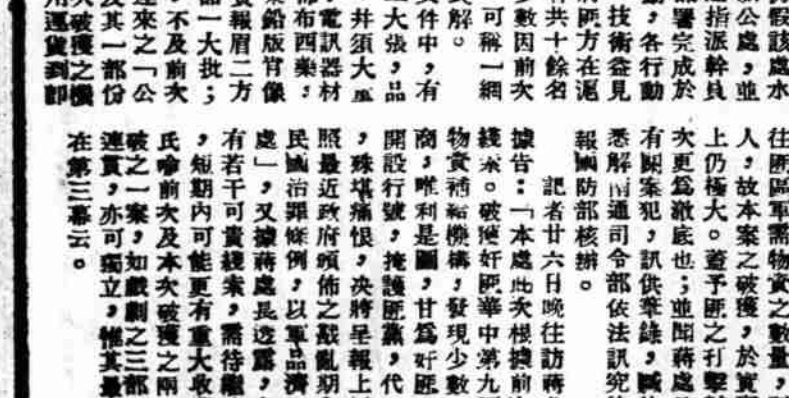 假該處水
公處,並
指派幹員
署完成於
,各行動
技術益見
匪方在滬
共十餘名
數因前次
可稱一網
解。
件中,有
大張,品
井須大
電訊器材
布西藥,
鉛版官像
報眉二方
一大批;
不及前次
來之「公
及其一部份
破獲之機
用運貨到卸
往匪區軍需物資之數量,
人,故本案之破獲,於實
上仍極大。蓋予匪之打擊
次更為澈底也;並聞蔣處
有關案犯,訊供
悉解 通司令部依法訊究
報國防部核辦。
記者廿六日晚往訪蔣
據告:「本處此次根據前
綫索。破獲奸匪華中第九
物資補給機構,發現少數
商,唯利是圖,甘爲奸匪
開設行號,掩護匪黨,代
,殊堪痛恨,決將呈報上
照最近政府頒佈之戡亂期
民國治罪條例,以軍品濟
處」,又據蔣處長透露,
有若干可貴綫索,需待繼
,短期內可能更有重大收
氏喻前次及本次破獲之兩
破之一案,如戲劇之三部
連貫,亦可獨立,惟其最
在第三幕云。